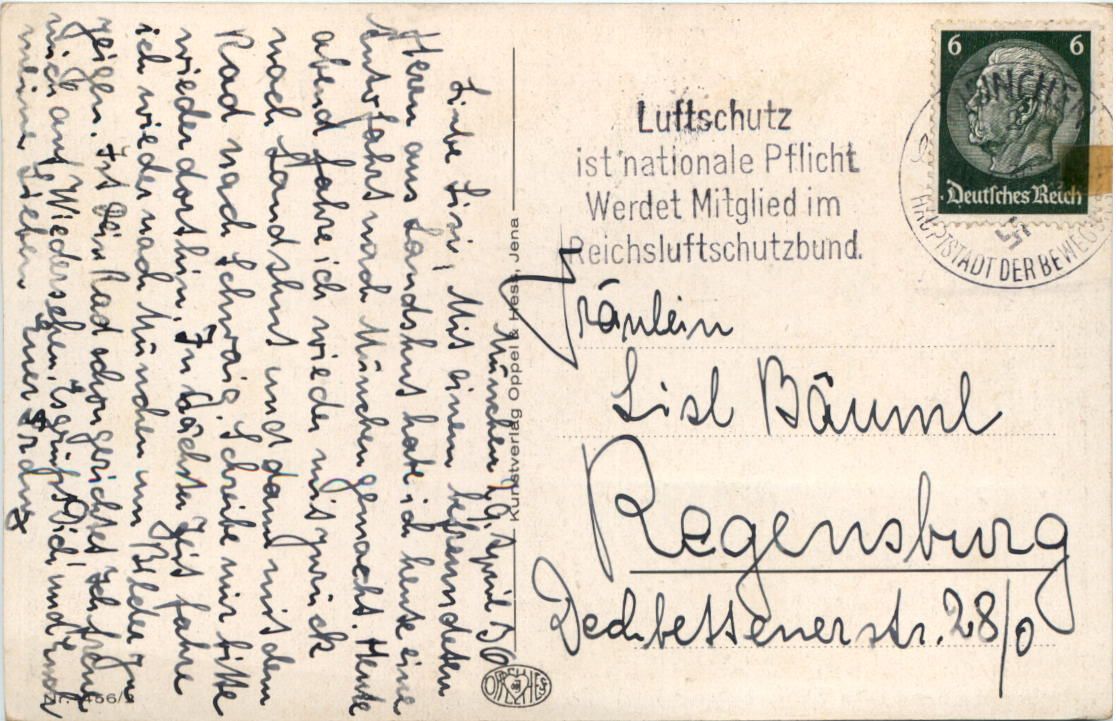 München, 19. April 36
Liebe Lisi, Mit einem befreundeten
Herrn aus Landshut habe ich heute eine
Autofahrt nach München gemacht. Heute
abend fahre ich wieder mit zurück
nach Landshut und dann mit dem
Rad nach Schwaig. Schreibe mir bitte
wieder dorthin. In nächster Zeit fahre
ich wieder nach München um Bilder zu
zeigen. Ist Dein Rad schon gerichtet Ich freue
mich auf Wiedersehen. Es grüßt Dich und
meine Lieben Euer
Kunstverlag Oppel & Hess, Jena
Luftschutz
ist nationale Pflicht
Werdet Mitglied im
Reichsluftschutzbund.
6 6
Deutsches Reich
MÜNCHEN
HAUPTSTADT DER BEWEG
Fräulein
Lisl Bäuml
Regensburg
Dechbettenerstr. 28/0